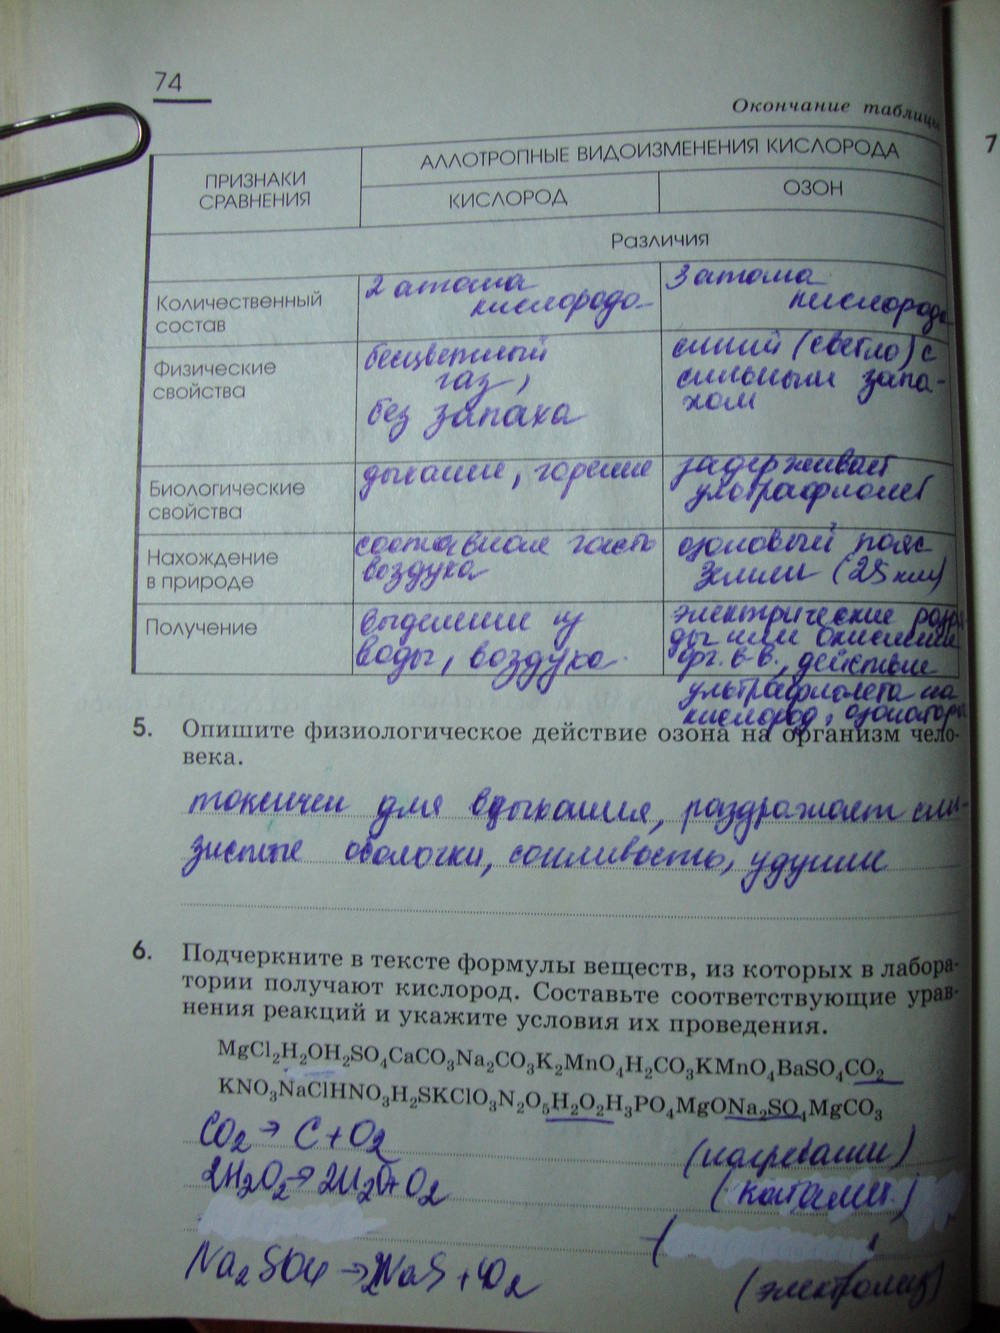 74
Окончание таблицы
7
ПРИЗНАКИ СРАВНЕНИЯ
АЛЛОТРОПНЫЕ ВИДОИЗМЕНЕНИЯ КИСЛОРОДА
КИСЛОРОД
ОЗОН
Различия
Количественный
состав
2 атома
кислорода
3 атома
кислорода
Физические
свойства
бесцветный
газ,
без запаха
синий (светло) с
сильным запа-
хом
Биологические
свойства
дыхание, горение
задерживает
ультрафиолет
Нахождение
в природе
составная часть
воздуха
озоновый пояс
Земли (25 км)
Получение
выделении из
воды, воздуха.
электрические разря-
ды или окислении
орг. в-в., действие
ультрафиолета на
кислород, озонаторы
5. Опишите физиологическое действие озона на организм чело-
века.
токсичен для вдыхания, раздражает сли-
зистые оболочки, сонливость, удушии
6. Подчеркните в тексте формулы веществ, из которых в лабора-
тории получают кислород. Составьте соответствующие урав-
нения реакций и укажите условия их проведения.
MgCl₂H₂OH₂SO₄CaCO₃Na₂CO₃K₂MnO₄H₂CO₃KMnO₄BaSO₄CO₂
KNO₃NaClHNO₃H₂SKClO₃N₂O₅H₂O₂H₃PO₄MgONa₂SO₄MgCO₃
CO₂ → C + O₂ (нагревании)
2H₂O₂ → 2H₂O + O₂ (катализ.)
(
Na₂SO₄ → 2NaS + 4O₂ (электролиз)